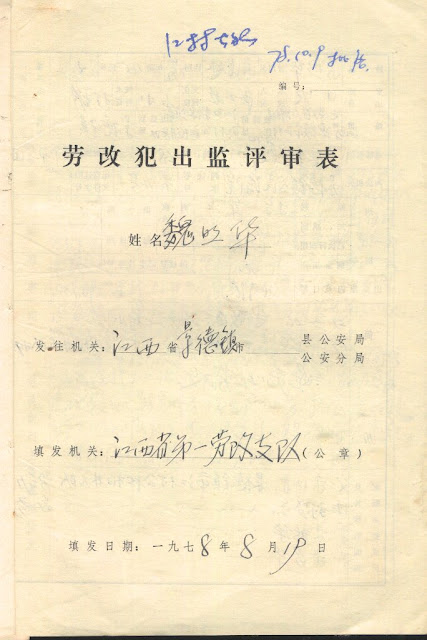 78.10.9
编号：
劳改犯出监评审表
姓名 魏明华
发往机关：江西省景德镇市 县公安局
公安分局
填发机关：江西省第一劳改支队（公章）
填发日期：一九七8年8月19日